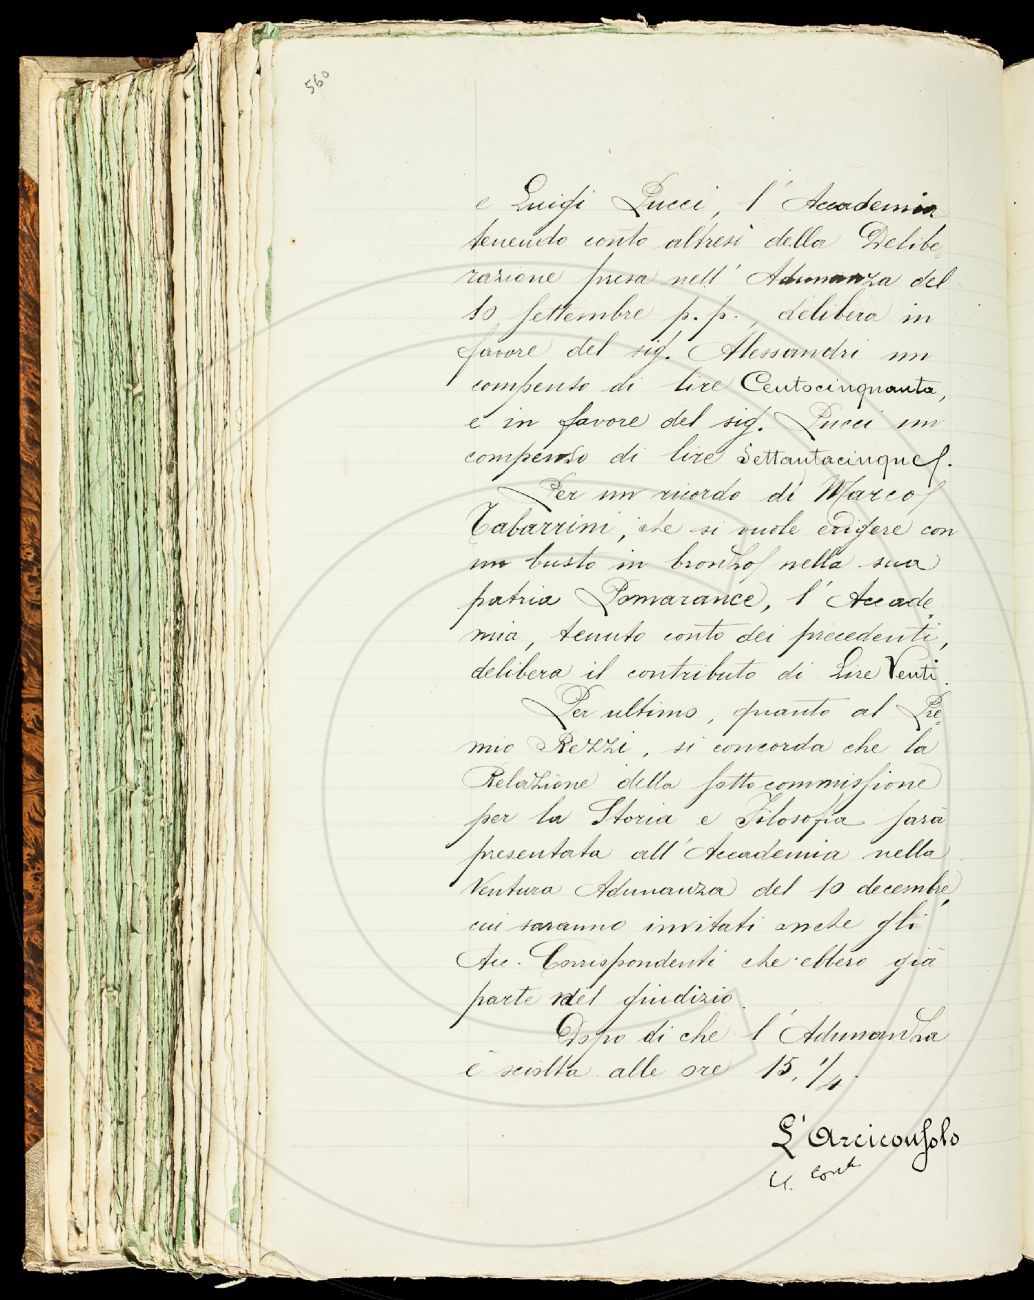 560
e Luigi Pucci, l'Accademia
tenendo conto altresì della Delibe=
razione presa nell'Adunanza del
10 settembre p. p., delibera in
favore del sig. Alessandri un
compenso di lire Centocinquanta,
e in favore del sig. Pucci un
compenso di lire Settantacinque.
Per un ricordo di Marco
Tabarrini, che si vuole erigere con
un busto in bronzo nella sua
patria Pomarance, l'Accade=
mia, tenuto conto dei precedenti,
delibera il contributo di Lire Venti.
Per ultimo, quanto al Pre=
mio Rezzi, si concorda che la
Relazione della sottocommissione
per la Storia e Filosofia sarà
presentata all'Accademia nella
Ventura Adunanza del 10 decembre,
cui saranno invitati anche gli
Acc. Corrispondenti che ebbero già
parte nel giudizio.
Dopo di che l'Adunanza
è sciolta alle ore 15. 1/4.
L'Arciconsolo